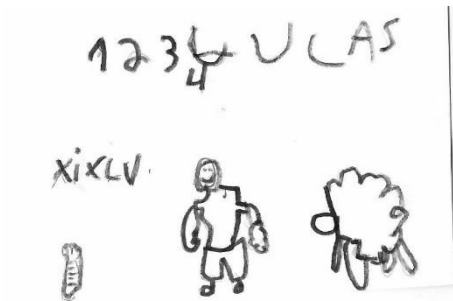 1234 U L A S
xixLV